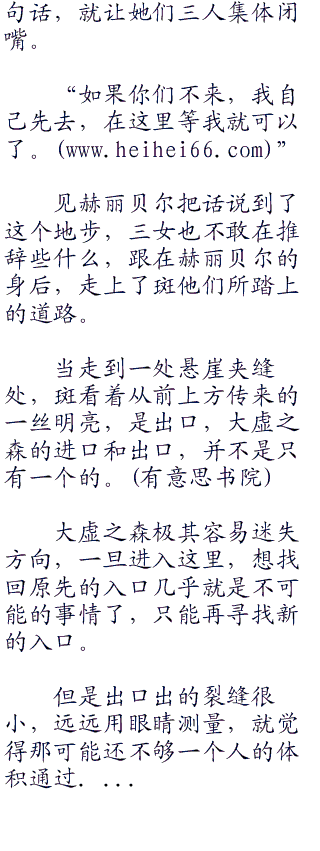 句话，就让她们三人集体闭
嘴。
“如果你们不来，我自
己先去，在这里等我就可以
了。(www.heihei66.com)”
见赫丽贝尔把话说到了
这个地步，三女也不敢在推
辞些什么，跟在赫丽贝尔的
身后，走上了斑他们所踏上
的道路。
当走到一处悬崖夹缝
处，斑看着从前上方传来的
一丝明亮，是出口，大虚之
森的进口和出口，并不是只
有一个的。(有意思书院)
大虚之森极其容易迷失
方向，一旦进入这里，想找
回原先的入口几乎就是不可
能的事情了，只能再寻找新
的入口。
但是出口出的裂缝很
小，远远用眼睛测量，就觉
得那可能还不够一个人的体
积通过．...